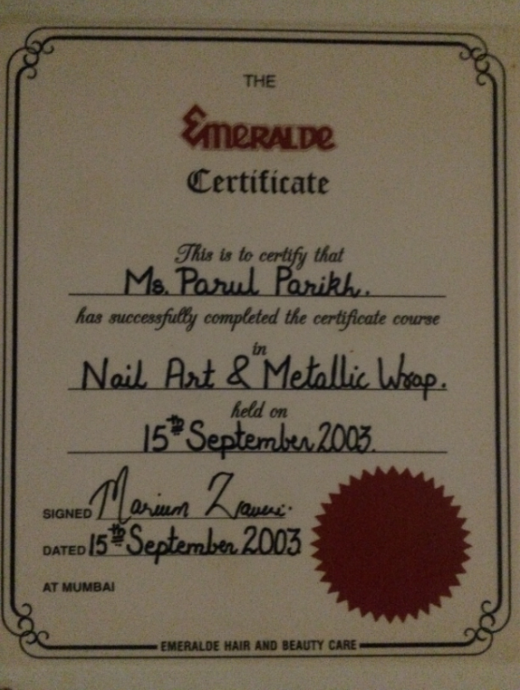 THE
EMERALDE
Certificate
This is to certify that
Ms. Parul Parikh.
has successfully completed the certificate course
in
Nail Art & Metallic Wrap.
held on
15th September 2003.
SIGNED Marium
DATED 15th September 2003
AT MUMBAI
EMERALDE HAIR AND BEAUTY CARE